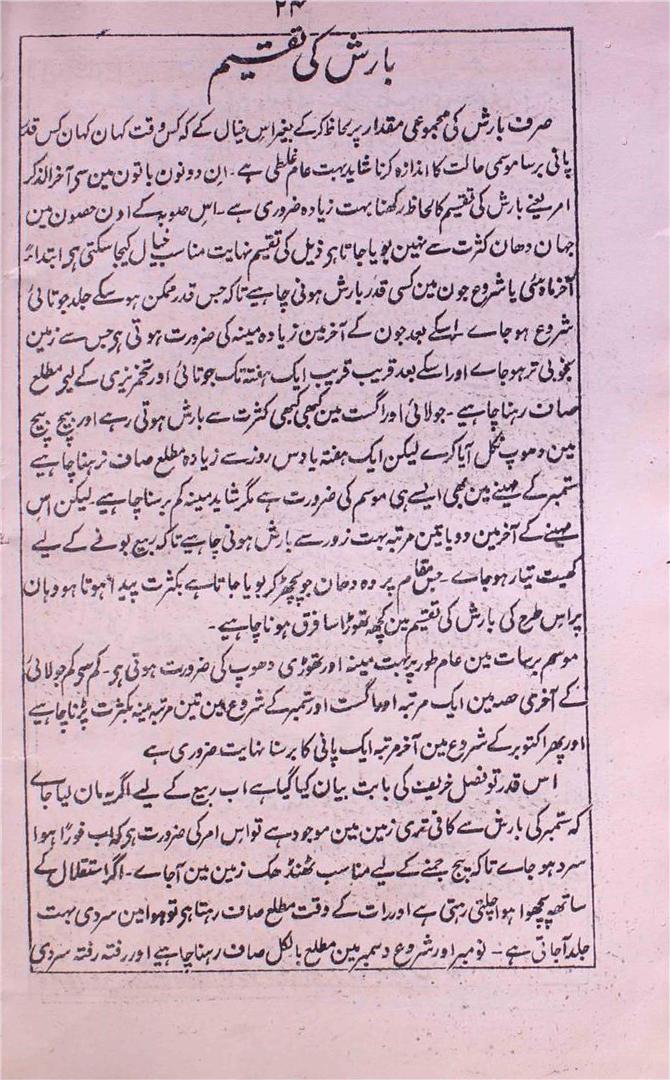 ۲۴
بارش کی تقسیم
صرف بارش کی مجموعی مقدار پر لحاظ کرکے بغیر اس خیال کے کہ کس وقت کہان کہان کس قدر
پانی برسا موسمی حالت کا اندازہ کرنا شاید بہت عام غلطی ہے ۔ ان دونون باتون مین سی آخر الذکر
امر یعنے بارش کی تقسیم کا لحاظ رکھنا بہت زیادہ ضروری ہے ۔ اس صوبہ کے اون حصون مین
جہان دھان کثرت سے نہین بویا جاتا ہر ذیل کی تقسیم نہایت مناسب خیال کیجا سکتی ہر ابتداءً
آخر ماہ مئی یا شروع جون مین کسی قدر بارش ہونی چاہیے تاکہ جس قدر ممکن ہو سکے جلد جوتائی
شروع ہو جاے ۔ اسکے بعد جون کے آخر مین زیادہ مینہ کی ضرورت ہوتی ہر جس سے زمین
بخوبی تر ہو جاے اور اسکے بعد قریب قریب ایک ہفتہ تک جوتائی اور تخمریزی کے لیے مطلع
صاف رہنا چاہیے ۔ جولائی اور اگست مین کبھی کبھی کثرت سے بارش ہوتی رہے اور بیچ بیچ
مین دھوپ نکل آیا کرے لیکن ایک ہفتہ یا دس روز سے زیادہ مطلع صاف نرہنا چاہیے
ستمبر کے مہینے مین بھی ایسے ہی موسم کی ضرورت ہے مگر شاید مینہ کم برسنا چاہیے ۔ لیکن اس
مہینے کے آخر مین دو یا تین مرتبہ بہت زور سے بارش ہونی چاہیے تاکہ ربیع بونے کے لیے
کھیت تیار ہو جاے ۔ جس مقام پر وہ دھان جو بچھڑ کر بویا جاتا ہے بکثرت پیدا ہوتا ہو وہان
پر اس طرح کی بارش کی تقسیم مین کچھ تھوڑا سا فرق ہونا چاہیے ۔
موسم برسات مین عام طور پر بہت مینہ اور تھوڑی دھوپ کی ضرورت ہوتی ہر ۔ کم سی کم جولائی
کے آخری حصہ مین ایک مرتبہ اور اگست اور ستمبر کے شروع مین تین مرتبہ مینہ بکثرت پڑنا چاہیے
اور پھر اکتوبر کے شروع مین آخر مرتبہ ایک پانی کا برسنا نہایت ضروری ہے
اس قدر تو فصل خریف کی بابت بیان کیا گیا ہے اب ربیع کے لیے اگر یہ مان لیا جاے
کہ ستمبر کی بارش سے کافی تری زمین مین موجود ہے تو اس امر کی ضرورت ہر کہ اب فورًا ہوا
سرد ہو جاے تاکہ بیج جمنے کے لیے مناسب ٹھنڈھک زمین مین آجاے ۔ اگر استقلال کے
ساتھ پچھوا ہوا چلتی رہتی ہے اور رات کے وقت مطلع صاف رہتا ہر تو ہوا مین سردی بہت
جلد آجاتی ہے ۔ نومبر اور شروع دسمبر مین مطلع بالکل صاف رہنا چاہیے اور رفتہ رفتہ سردی